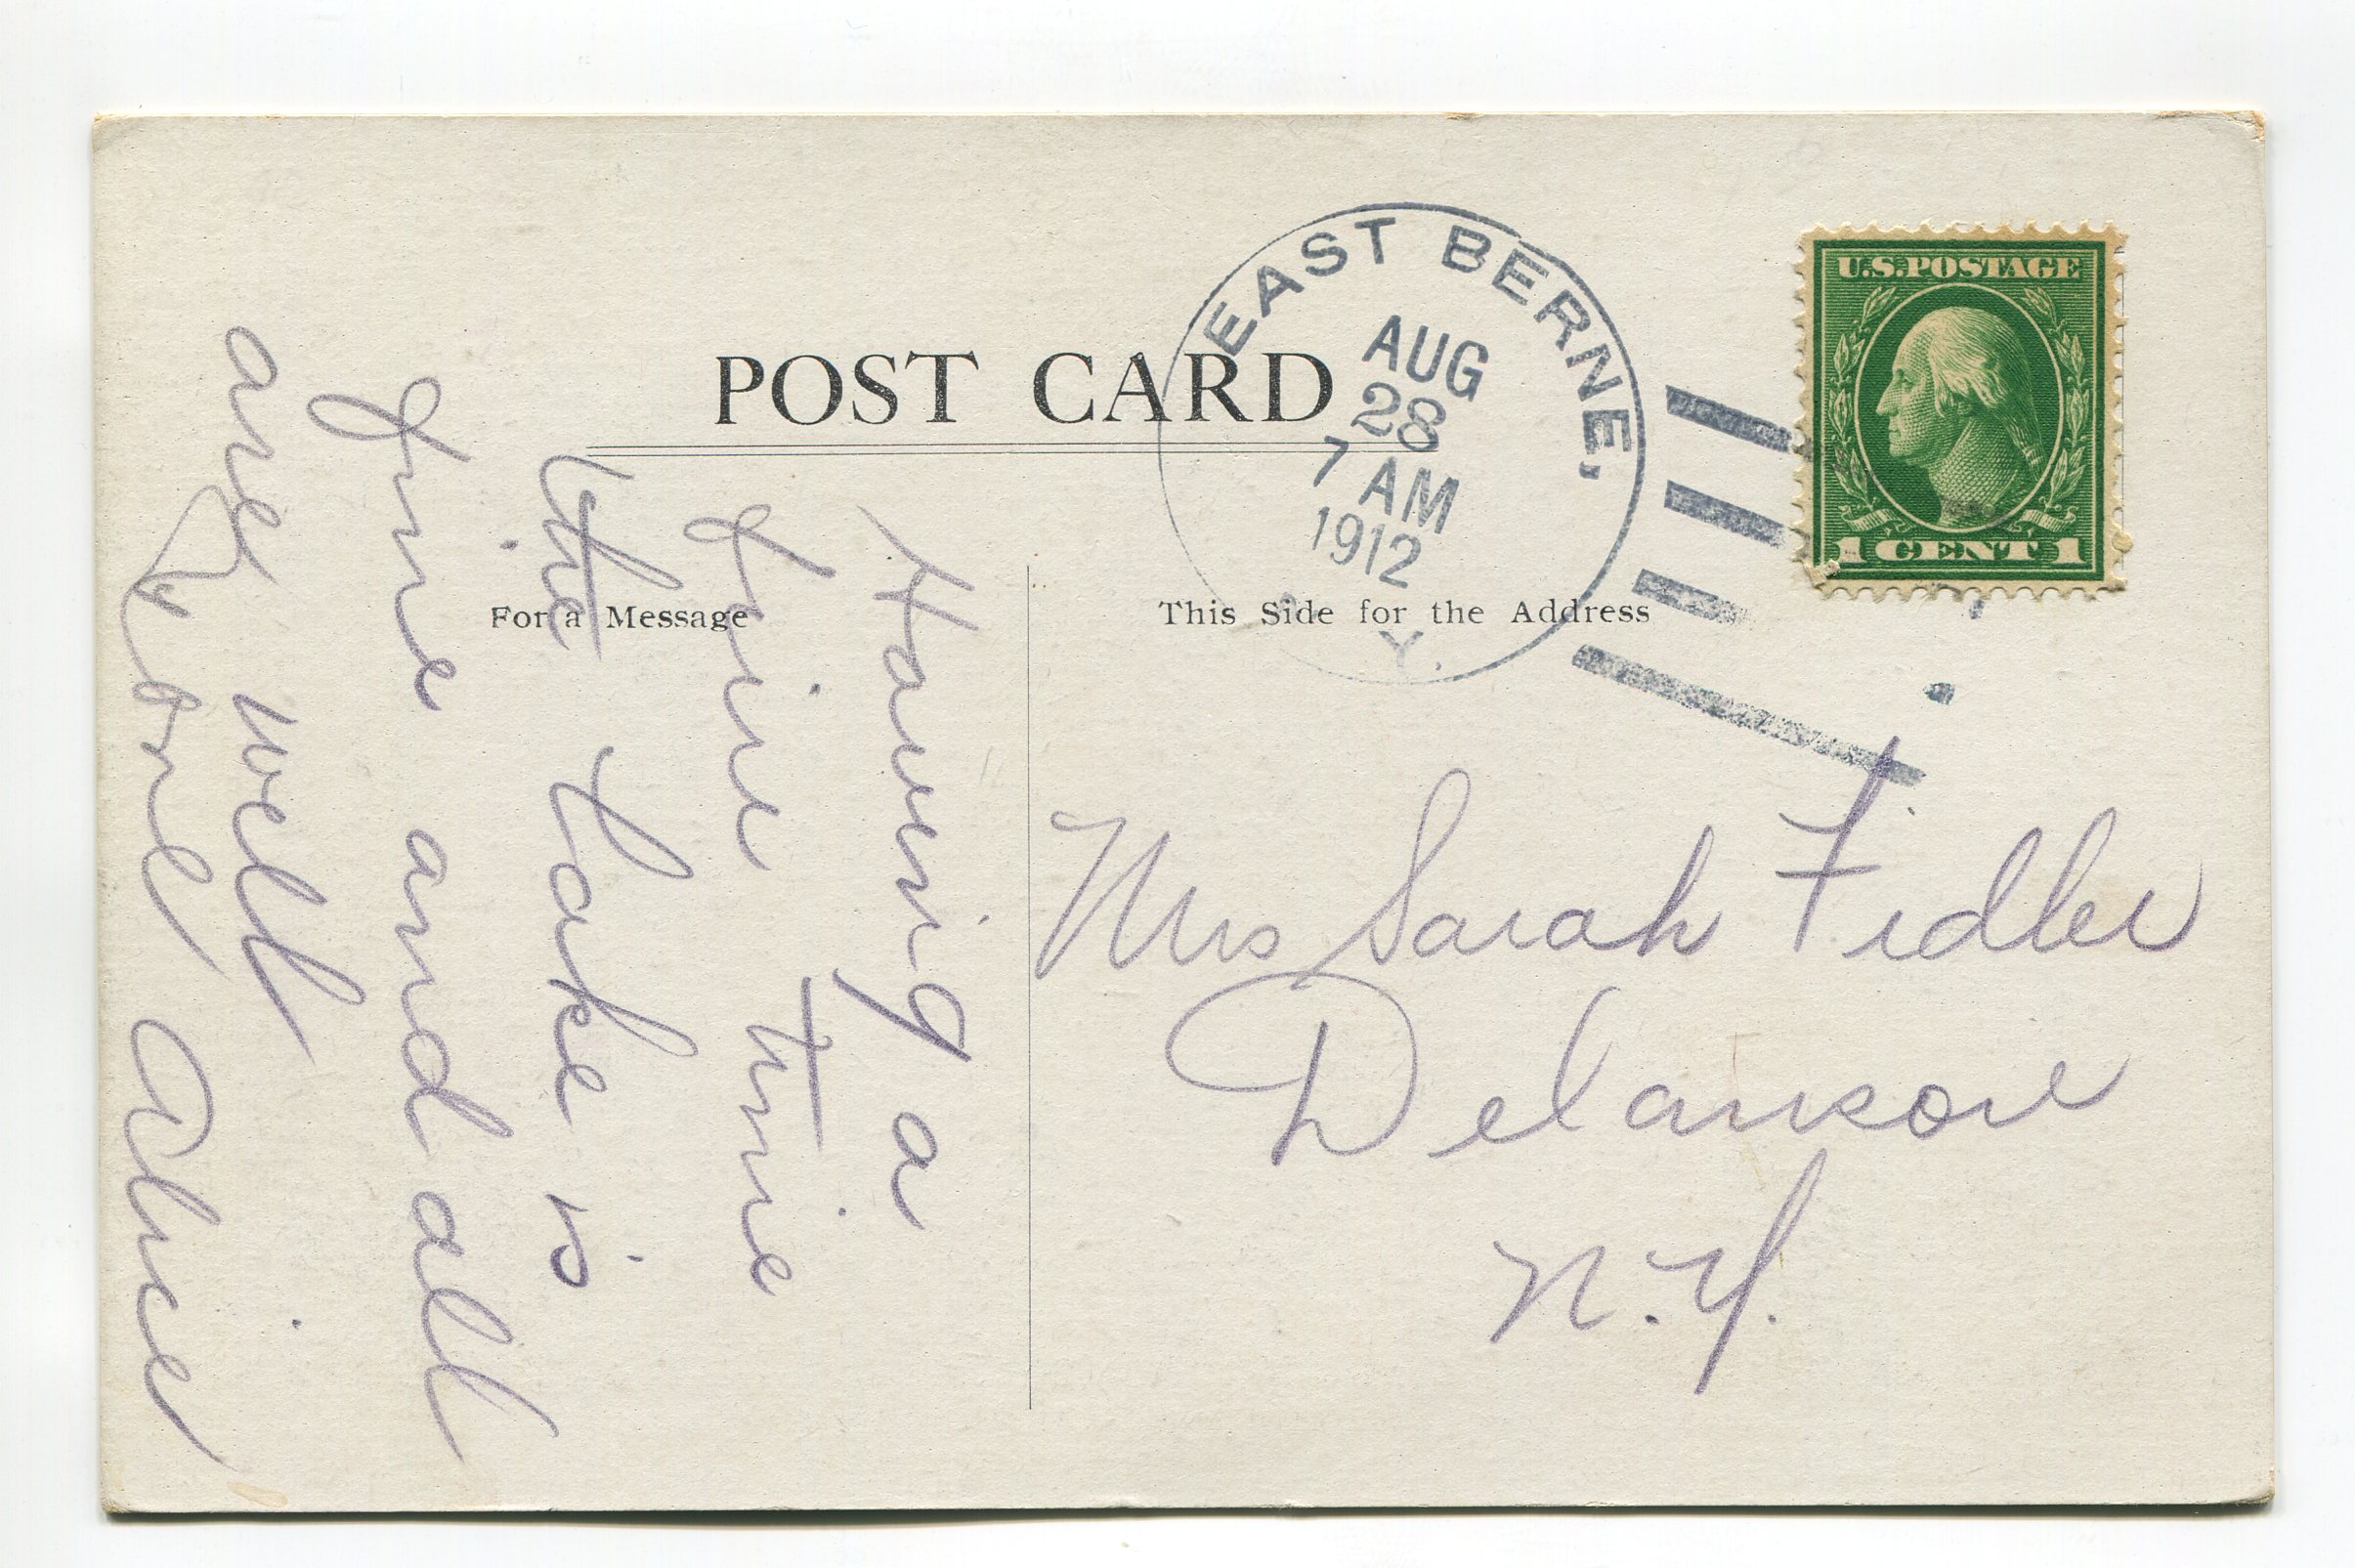 POST CARD
EAST BERNE,
AUG
28
7 AM
1912
Y.
U.S.POSTAGE
1 CENT 1
For a Message
This Side for the Address
Having a
fine time
the Lake is
fine and all
are well
Alice
Mrs Sarah Fidler
Delanson
N.Y.